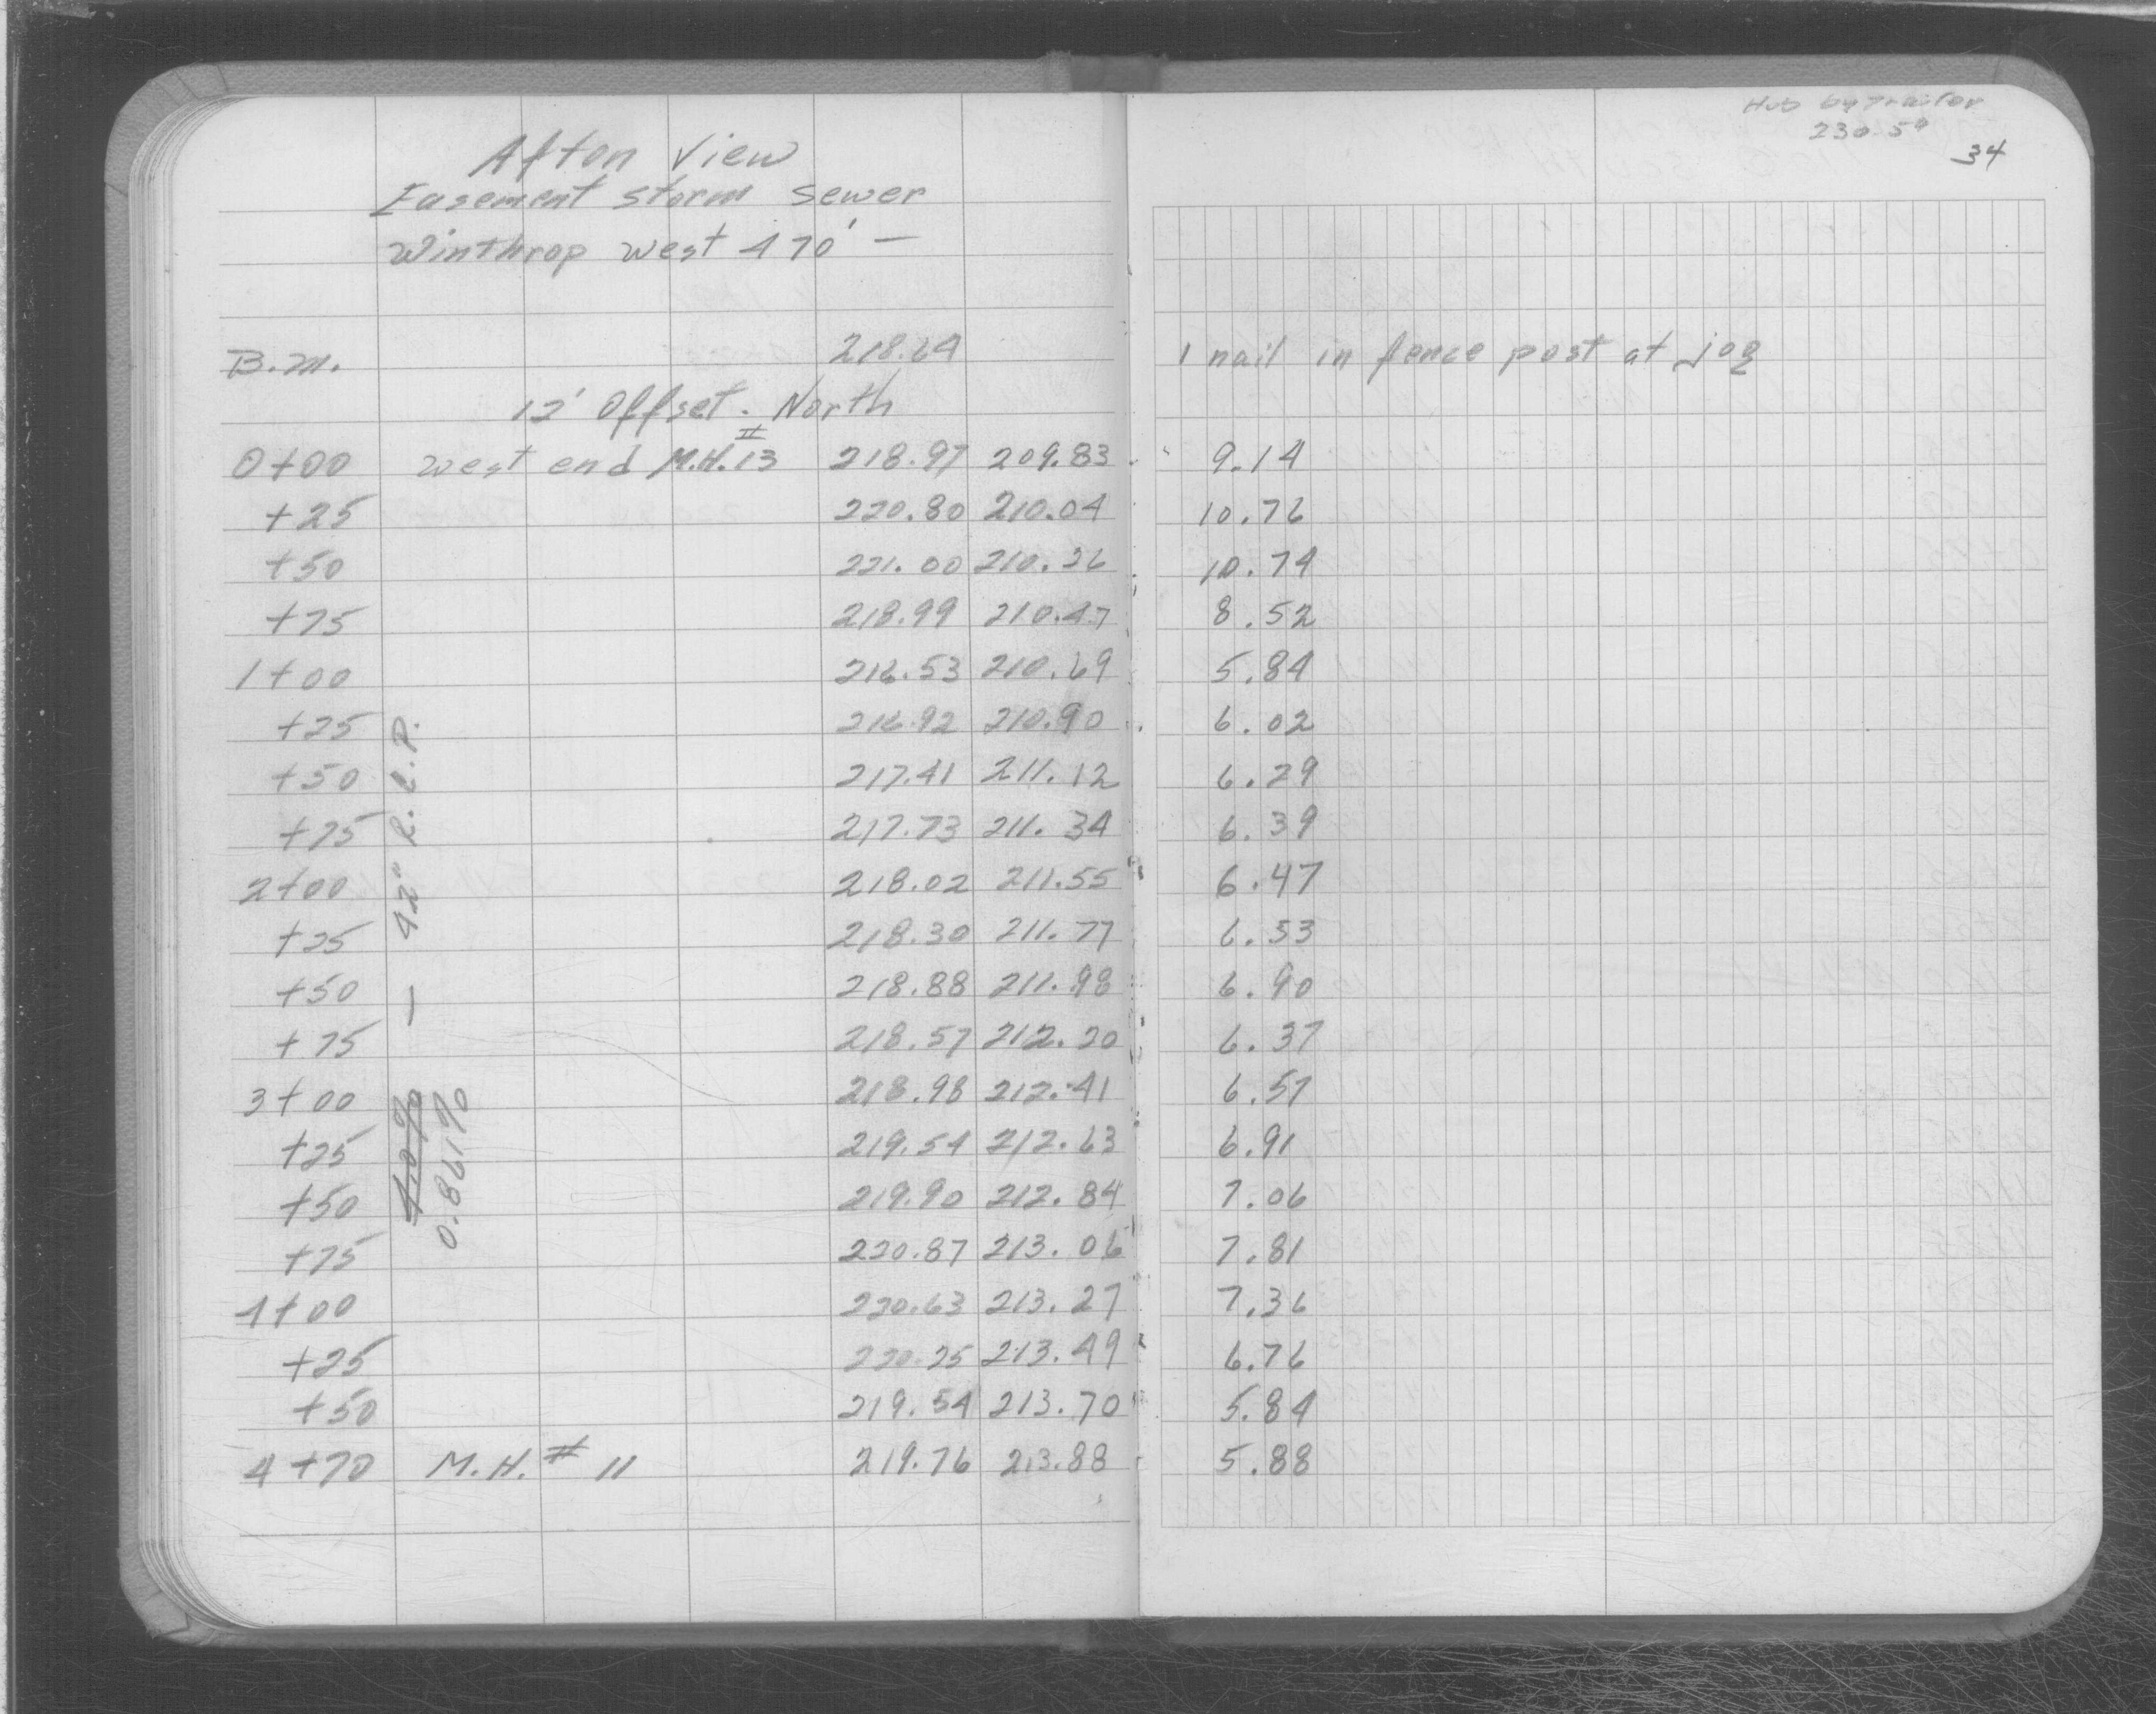 Afton View
Easement Storm Sewer
Winthrop West 470' —
Hub by trailer
230.59
34
B.M. 218.64 1 nail in fence post at jog
12' Offset. North
0+00 west end M.H. 13 218.97 209.83 9.14
+25 220.80 210.04 10.76
+50 221.00 210.26 10.74
+75 218.99 210.47 8.52
1+00 216.53 210.69 5.84
+25 216.92 210.90 6.02
+50 217.41 211.12 6.29
+75 217.73 211.34 6.39
2+00 218.02 211.55 6.47
+25 218.30 211.77 6.53
+50 218.88 211.98 6.90
+75 218.57 212.20 6.37
3+00 218.98 212.41 6.57
+25 219.54 212.63 6.91
+50 219.90 212.84 7.06
+75 220.87 213.06 7.81
4+00 220.63 213.27 7.36
+25 220.25 213.49 6.76
+50 219.54 213.70 5.84
4+70 M.H. # 11 219.76 213.88 5.88
— 42" R.C.P.
0.861%